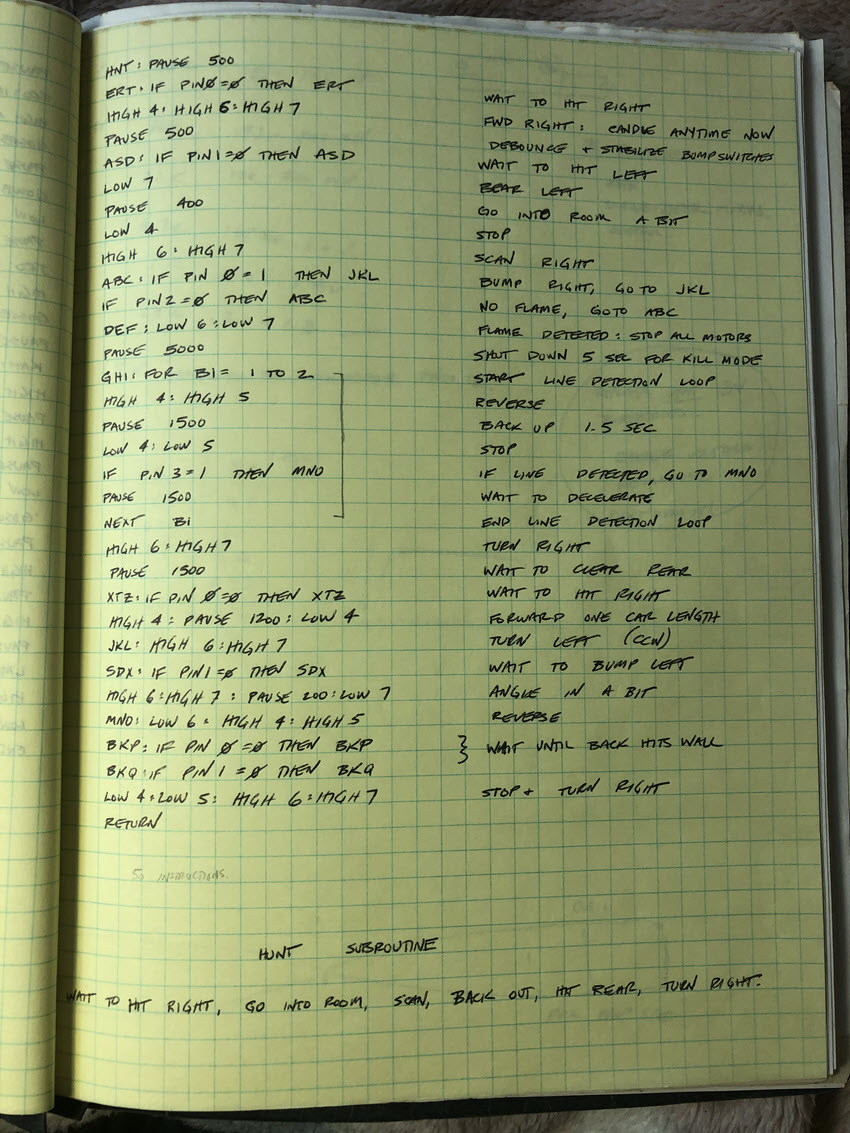 HNT: PAUSE 500
ERT: IF PIN0=0 THEN ERT WAIT TO HIT RIGHT
HIGH 4: HIGH 6: HIGH 7 FWD RIGHT: CANDLE ANYTIME NOW
PAUSE 500 DEBOUNCE + STABILIZE BUMPSWITCHES
ASD: IF PIN1=0 THEN ASD WAIT TO HIT LEFT
LOW 7 BEAR LEFT
PAUSE 400 GO INTO ROOM A BIT
LOW 4 STOP
HIGH 6: HIGH 7 SCAN RIGHT
ABC: IF PIN 0=1 THEN JKL BUMP RIGHT, GO TO JKL
IF PIN2=0 THEN ABC NO FLAME, GOTO ABC
DEF: LOW 6: LOW 7 FLAME DETETED: STOP ALL MOTORS
PAUSE 5000 SHUT DOWN 5 SEC FOR KILL MODE
GHI: FOR B1= 1 TO 2 START LINE DETECTION LOOP
HIGH 4: HIGH 5 REVERSE
PAUSE 1500 BACK UP 1.5 SEC
LOW 4: LOW 5 STOP
IF PIN 3=1 THEN MNO IF LINE DETECTED, GO TO MNO
PAUSE 1500 WAIT TO DECELERATE
NEXT B1 END LINE DETECTION LOOP
HIGH 6: HIGH 7 TURN RIGHT
PAUSE 1500 WAIT TO CLEAR REAR
XTZ: IF PIN 0=0 THEN XTZ WAIT TO HIT RIGHT
HIGH 4: PAUSE 1200: LOW 4 FORWARD ONE CAR LENGTH
JKL: HIGH 6: HIGH 7 TURN LEFT (CCW)
SDX: IF PIN1=0 THEN SDX WAIT TO BUMP LEFT
HIGH 6: HIGH 7: PAUSE 200: LOW 7 ANGLE IN A BIT
MNO: LOW 6: HIGH 4: HIGH 5 REVERSE
BKP: IF PIN 0=0 THEN BKP } WAIT UNTIL BACK HITS WALL
BKQ: IF PIN1=0 THEN BKQ
LOW 4: LOW 5: HIGH 6: HIGH 7 STOP + TURN RIGHT
RETURN
INSTRUCTIONS.
HUNT SUBROUTINE
WAIT TO HIT RIGHT, GO INTO ROOM, SCAN, BACK OUT, HIT REAR, TURN RIGHT.